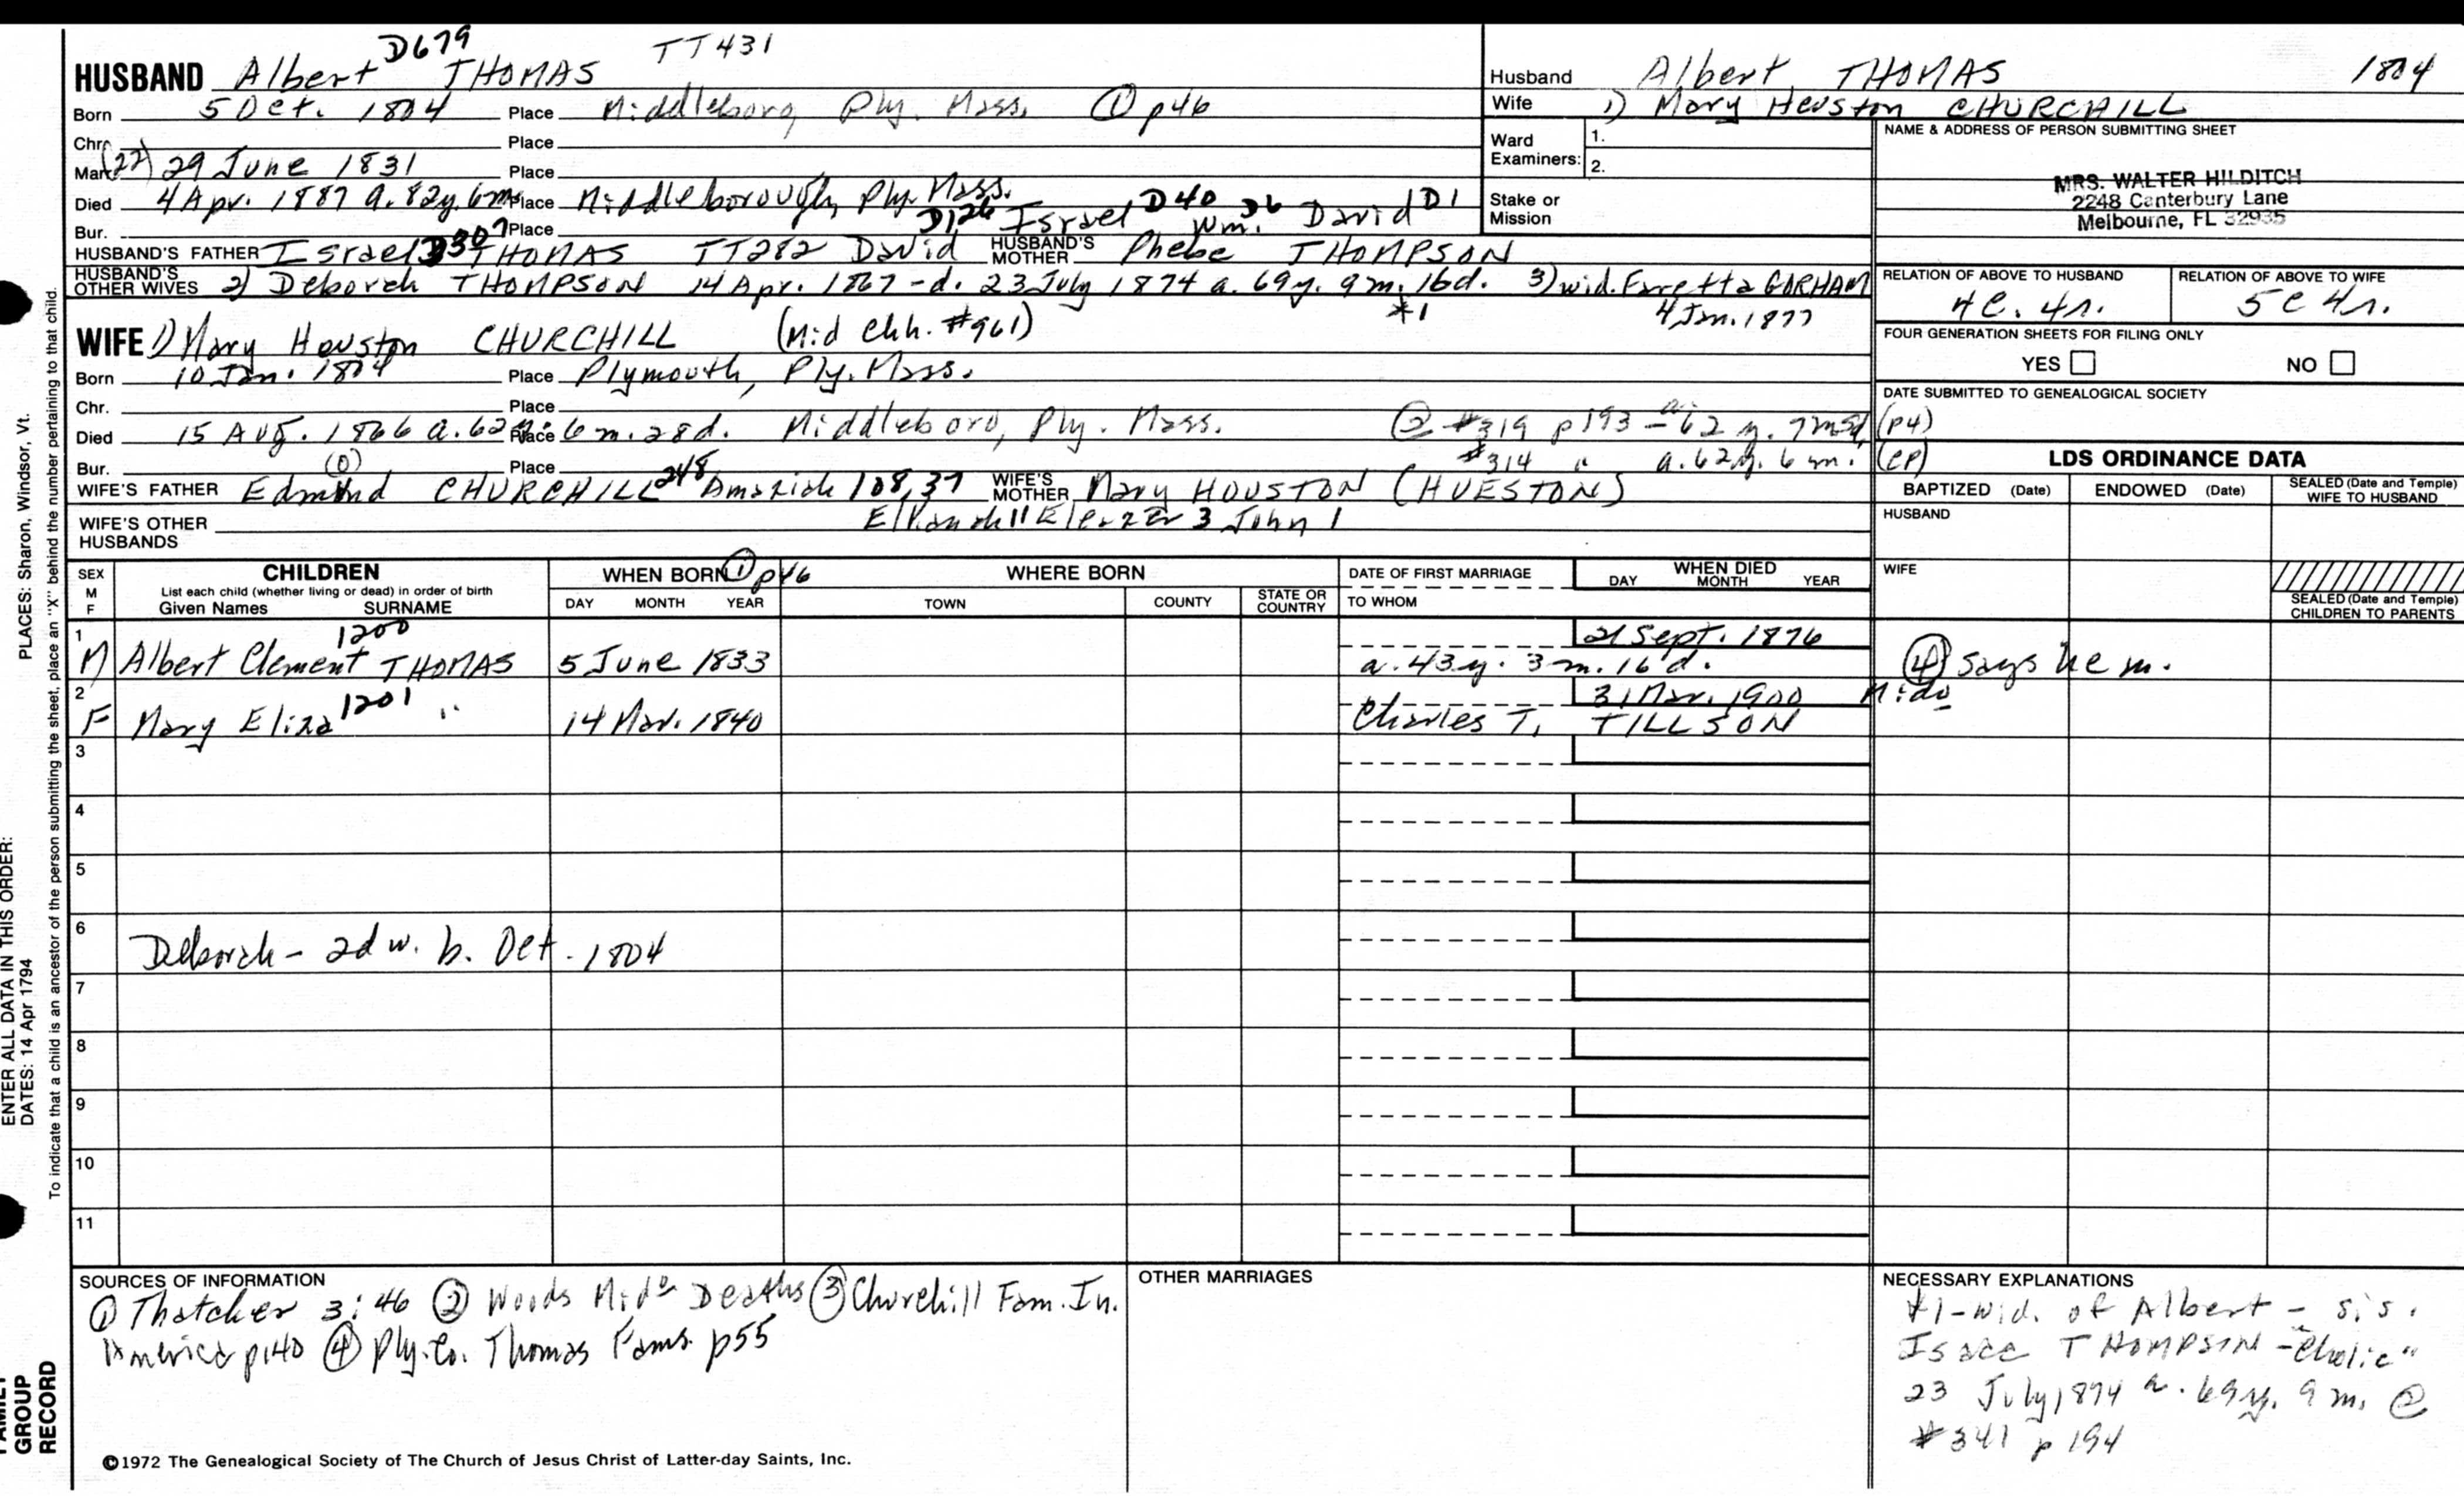 D679 TT431
HUSBAND Albert THOMAS
Born 5 Oct. 1804 Place Middleboro, Ply. Mass. ① p46
Chr. Place
Mar. (22) 29 June 1831 Place
Died 4 Apr. 1887 a. 82y. 6m. Place Middleborough, Ply. Mass.
Bur. Place D126 Israel D40 Wm. D6 David D1
HUSBAND'S FATHER Israel D307 THOMAS TT282 David HUSBAND'S MOTHER Phebe THOMPSON
HUSBAND'S OTHER WIVES 2) Deborah THOMPSON 14 Apr. 1867 - d. 23 July 1874 a. 69y. 9m. 16d. 3) wid. GORHAM
*1 4 Jan. 1877
WIFE 1) Mary Houston CHURCHILL (Mid Chh. #961)
Born 10 Jan. 1804 Place Plymouth, Ply. Mass.
Chr. Place
Died 15 Aug. 1866 a. 62y. Place 6m. 28d. Middleboro, Ply. Mass. ② #319 p193 - a. 62 y. 7m 5d (p4)
Bur. Place #314 " a. 62y. 6m. (CP)
(O)
WIFE'S FATHER Edmund CHURCHILL 248 Amaziah 108, 37 WIFE'S MOTHER Mary HOUSTON (HUESTON)
WIFE'S OTHER HUSBANDS Elkanah 11 Eleazer 3 John 1
Husband Albert THOMAS 1804
Wife 1) Mary Heuston CHURCHILL
Ward Examiners: 1.
2.
Stake or Mission
NAME & ADDRESS OF PERSON SUBMITTING SHEET
MRS. WALTER HILDITCH
2248 Canterbury Lane
Melbourne, FL 32935
RELATION OF ABOVE TO HUSBAND RELATION OF ABOVE TO WIFE
4c. 4r. 5c 4r.
FOUR GENERATION SHEETS FOR FILING ONLY
YES NO
DATE SUBMITTED TO GENEALOGICAL SOCIETY
LDS ORDINANCE DATA
BAPTIZED (Date) ENDOWED (Date) SEALED (Date and Temple) WIFE TO HUSBAND
HUSBAND
WIFE
SEALED (Date and Temple) CHILDREN TO PARENTS
SEX M F
CHILDREN
List each child (whether living or dead) in order of birth
Given Names SURNAME
WHEN BORN ① p46
DAY MONTH YEAR
WHERE BORN
TOWN COUNTY STATE OR COUNTRY
DATE OF FIRST MARRIAGE
TO WHOM
WHEN DIED
DAY MONTH YEAR
1 1200 21 Sept. 1876
M Albert Clement THOMAS 5 June 1833 a. 43y. 3m. 16d. ④ says he m.
2 1201 31 Mar. 1900 Mido
F Mary Eliza " 14 Mar. 1840 Charles T. TILLSON
3
4
5
6
Deborah - 2d w. b. Oct. 1804
7
8
9
10
11
SOURCES OF INFORMATION
① Thatcher 3:46 ② Woods Mido Deaths ③ Churchill Fam. In.
America p140 ④ Ply. Co. Thomas Fams. p55
OTHER MARRIAGES
NECESSARY EXPLANATIONS
*1 - wid. of Albert - sis.
Isaac THOMPSON - "Cholic"
23 July 1874 a. 69y. 9m. ②
#341 p194
©1972 The Genealogical Society of The Church of Jesus Christ of Latter-day Saints, Inc.
PLACES: Sharon, Windsor, Vt.
ENTER ALL DATA IN THIS ORDER:
DATES: 14 Apr 1794
To indicate that a child is an ancestor of the person submitting the sheet, place an "X" behind the number pertaining to that child.
FAMILY
GROUP
RECORD